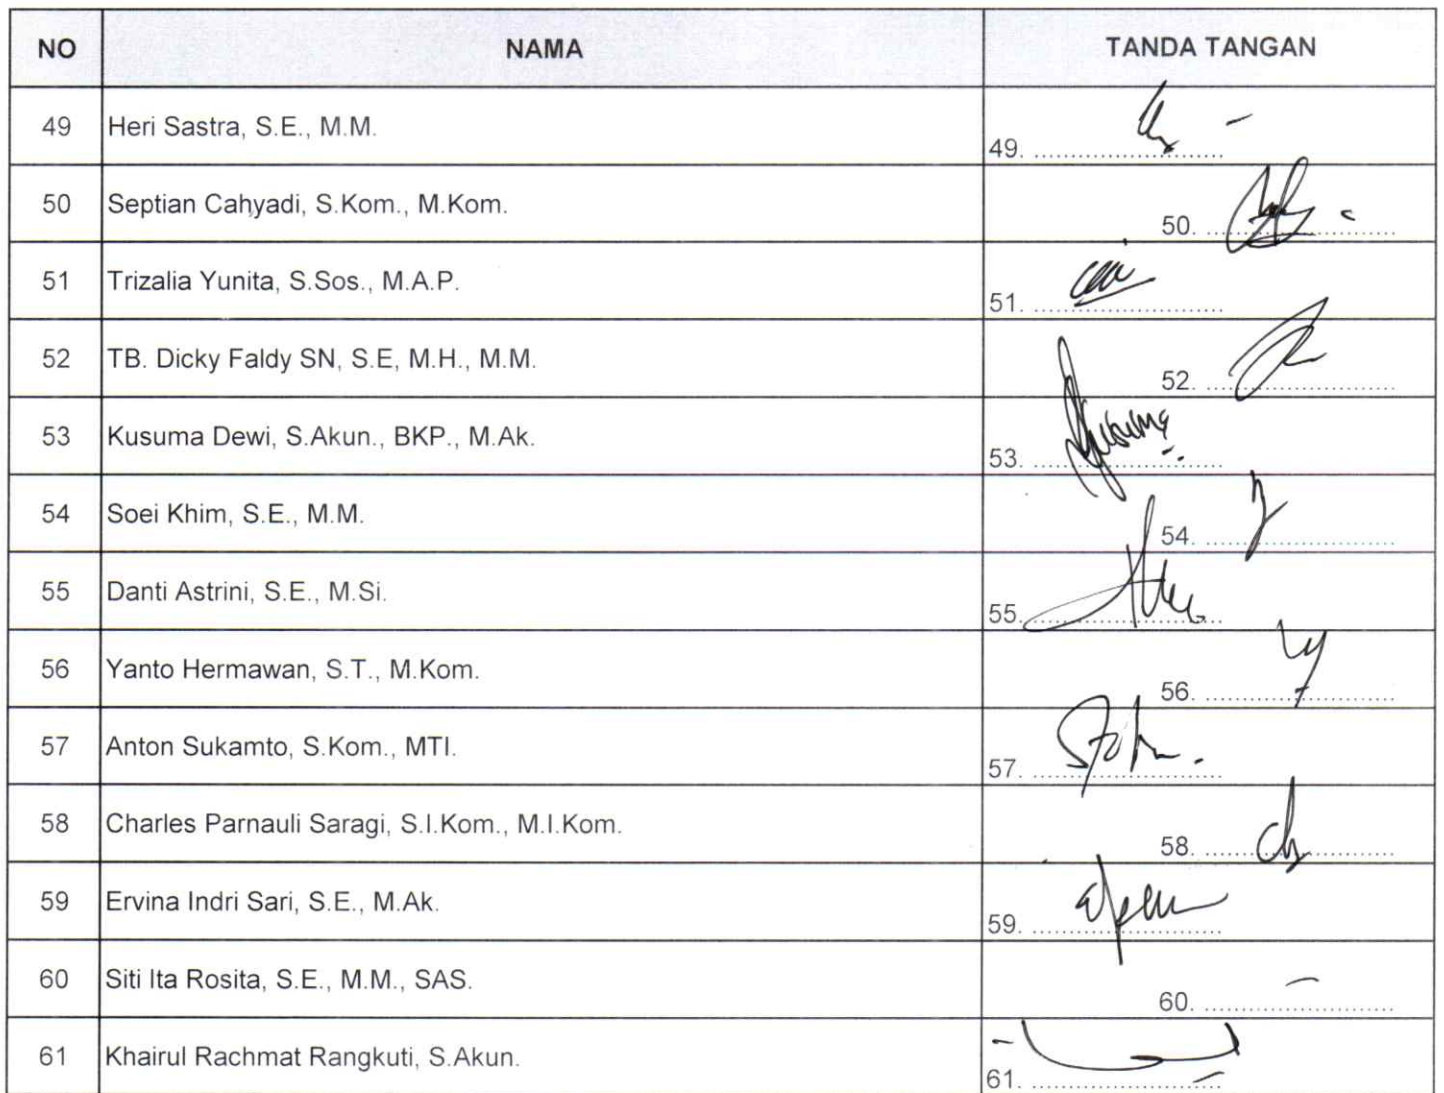 NO NAMA TANDA TANGAN
49 Heri Sastra, S.E., M.M. 49. ........................
50 Septian Cahyadi, S.Kom., M.Kom. 50. ........................
51 Trizalia Yunita, S.Sos., M.A.P. 51. ........................
52 TB. Dicky Faldy SN, S.E, M.H., M.M. 52. ........................
53 Kusuma Dewi, S.Akun., BKP., M.Ak. 53. ........................
54 Soei Khim, S.E., M.M. 54. ........................
55 Danti Astrini, S.E., M.Si. 55. ........................
56 Yanto Hermawan, S.T., M.Kom. 56. ........................
57 Anton Sukamto, S.Kom., MTI. 57. ........................
58 Charles Parnauli Saragi, S.I.Kom., M.I.Kom. 58. ........................
59 Ervina Indri Sari, S.E., M.Ak. 59. ........................
60 Siti Ita Rosita, S.E., M.M., SAS. 60. ........................
61 Khairul Rachmat Rangkuti, S.Akun. 61. ........................